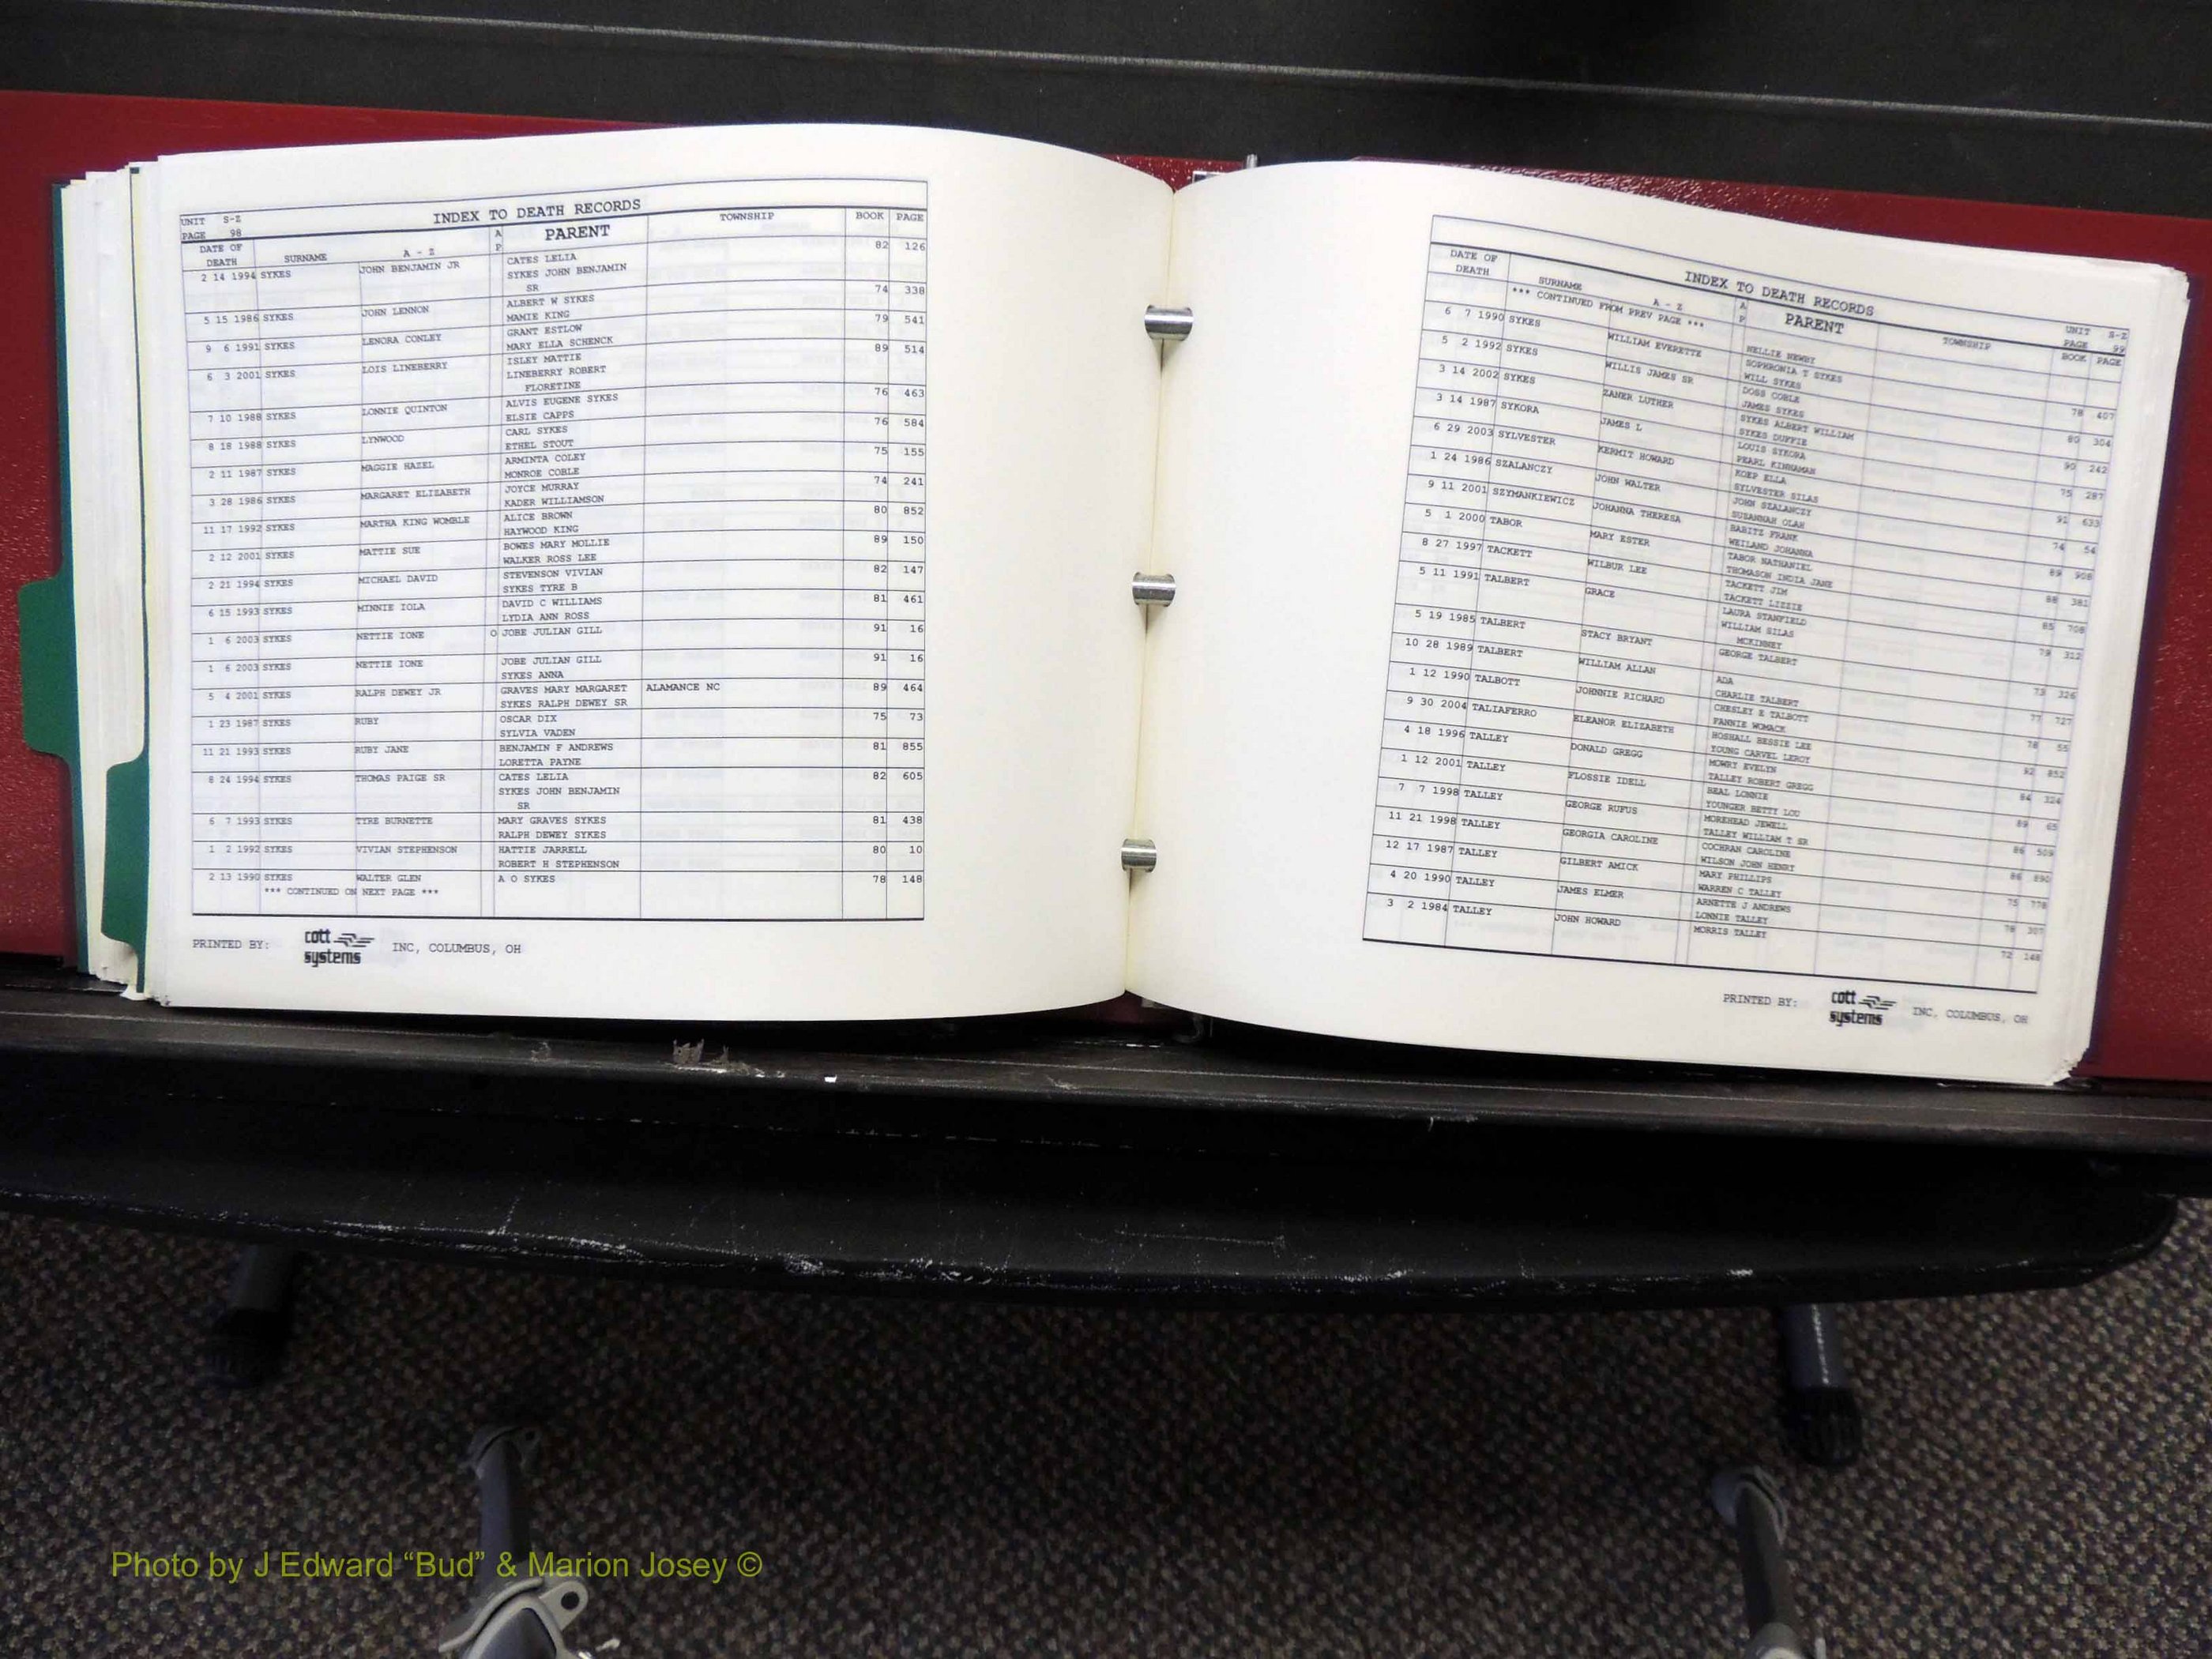 INDEX TO DEATH RECORDS
UNIT S-Z
PAGE 98
DATE OF DEATH SURNAME A - Z A P PARENT TOWNSHIP BOOK PAGE
2 14 1994 SYKES JOHN BENJAMIN JR CATES LELIA 82 126
SYKES JOHN BENJAMIN
SR
5 15 1986 SYKES JOHN LENNON ALBERT W SYKES 74 338
MAMIE KING
9 6 1991 SYKES LENORA CONLEY GRANT ESTLOW 79 541
MARY ELLA SCHENCK
6 3 2001 SYKES LOIS LINEBERRY ISLEY MATTIE 89 514
LINEBERRY ROBERT
FLORETINE
7 10 1988 SYKES LONNIE QUINTON ALVIS EUGENE SYKES 76 463
ELSIE CAPPS
8 18 1988 SYKES LYNWOOD CARL SYKES 76 584
ETHEL STOUT
2 11 1987 SYKES MAGGIE HAZEL ARMINTA COLEY 75 155
MONROE COBLE
3 28 1986 SYKES MARGARET ELIZABETH JOYCE MURRAY 74 241
KADER WILLIAMSON
11 17 1992 SYKES MARTHA KING WOMBLE ALICE BROWN 80 852
HAYWOOD KING
2 12 2001 SYKES MATTIE SUE BOWES MARY MOLLIE 89 150
WALKER ROSS LEE
2 21 1994 SYKES MICHAEL DAVID STEVENSON VIVIAN 82 147
SYKES TYRE B
6 15 1993 SYKES MINNIE IOLA DAVID C WILLIAMS 81 461
LYDIA ANN ROSS
1 6 2003 SYKES NETTIE IONE O JOBE JULIAN GILL 91 16
1 6 2003 SYKES NETTIE IONE JOBE JULIAN GILL 91 16
SYKES ANNA
5 4 2001 SYKES RALPH DEWEY JR GRAVES MARY MARGARET ALAMANCE NC 89 464
SYKES RALPH DEWEY SR
1 23 1987 SYKES RUBY OSCAR DIX 75 73
SYLVIA VADEN
11 21 1993 SYKES RUBY JANE BENJAMIN F ANDREWS 81 855
LORETTA PAYNE
8 24 1994 SYKES THOMAS PAIGE SR CATES LELIA 82 605
SYKES JOHN BENJAMIN
SR
6 7 1993 SYKES TYRE BURNETTE MARY GRAVES SYKES 81 438
RALPH DEWEY SYKES
1 2 1992 SYKES VIVIAN STEPHENSON HATTIE JARRELL 80 10
ROBERT H STEPHENSON
2 13 1990 SYKES WALTER GLEN A O SYKES 78 148
*** CONTINUED ON NEXT PAGE ***
PRINTED BY: cott systems INC, COLUMBUS, OH
INDEX TO DEATH RECORDS
UNIT S-Z
PAGE 99
DATE OF DEATH SURNAME A - Z A P PARENT TOWNSHIP BOOK PAGE
*** CONTINUED FROM PREV PAGE ***
NELLIE NEWBY
6 7 1990 SYKES WILLIAM EVERETTE SOPHRONIA T SYKES 78 407
WILL SYKES
5 2 1992 SYKES WILLIS JAMES SR DOSS COBLE 80 304
JAMES SYKES
3 14 2002 SYKES ZANER LUTHER SYKES ALBERT WILLIAM 90 242
SYKES DUFFIE
3 14 1987 SYKORA JAMES L LOUIS SYKORA 75 287
PEARL KINNAMAN
6 29 2003 SYLVESTER KERMIT HOWARD KOEP ELLA 91 633
SYLVESTER SILAS
1 24 1986 SZALANCZY JOHN WALTER JOHN SZALANCZY 74 54
SUSANNAH OLAH
9 11 2001 SZYMANKIEWICZ JOHANNA THERESA BARITZ FRANK 89 908
WEILAND JOHANNA
5 1 2000 TABOR MARY ESTER TABOR NATHANIEL 88 381
THOMASON INDIA JANE
8 27 1997 TACKETT WILBUR LEE TACKETT JIM 85 708
TACKETT LIZZIE
5 11 1991 TALBERT GRACE LAURA STANFIELD 79 312
WILLIAM SILAS
MCKINNEY
5 19 1985 TALBERT STACY BRYANT GEORGE TALBERT 73 326
10 28 1989 TALBERT WILLIAM ALLAN ADA 77 727
CHARLIE TALBERT
1 12 1990 TALBOTT JOHNNIE RICHARD CHESLEY E TALBOTT 78 55
FANNIE WOMACK
9 30 2004 TALIAFERRO ELEANOR ELIZABETH HOSHALL BESSIE LEE 92 852
YOUNG CARVEL LEROY
4 18 1996 TALLEY DONALD GREGG MOWRY EVELYN 84 324
TALLEY ROBERT GREGG
1 12 2001 TALLEY FLOSSIE IDELL BEAL LONNIE 89 65
YOUNGER BETTY LOU
7 7 1998 TALLEY GEORGE RUFUS MOREHEAD JEWELL 86 509
TALLEY WILLIAM T SR
11 21 1998 TALLEY GEORGIA CAROLINE COCHRAN CAROLINE 86 890
WILSON JOHN HENRY
12 17 1987 TALLEY GILBERT AMICK MARY PHILLIPS 75 778
WARREN C TALLEY
4 20 1990 TALLEY JAMES ELMER ARNETTE J ANDREWS 78 307
LONNIE TALLEY
3 2 1984 TALLEY JOHN HOWARD MORRIS TALLEY 72 148
PRINTED BY: cott systems INC, COLUMBUS, OH
Photo by J Edward “Bud” & Marion Josey ©